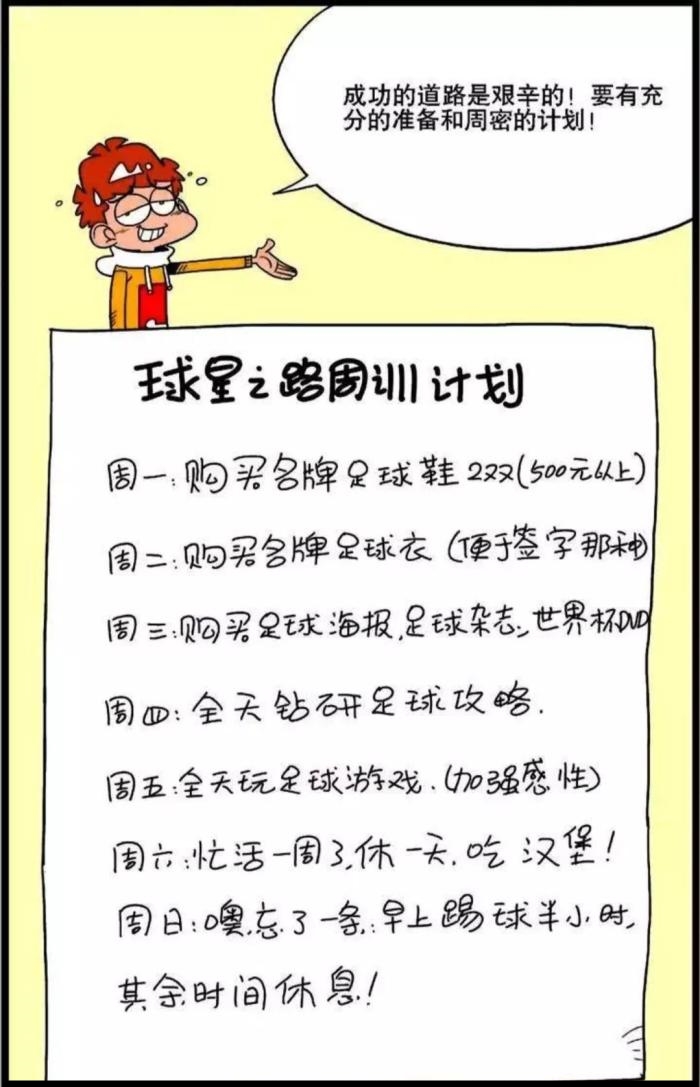 成功的道路是艰辛的！要有充
分的准备和周密的计划！
球星之路周训计划
周一:购买名牌足球鞋2双(500元以上)
周二:购买名牌足球衣(便于签字那种)
周三:购买足球海报,足球杂志,世界杯DVD
周四:全天钻研足球攻略.
周五:全天玩足球游戏.(加强感性)
周六:忙活一周了,休一天.吃汉堡!
周日:噢,忘了一条:早上踢球半小时,
其余时间休息!